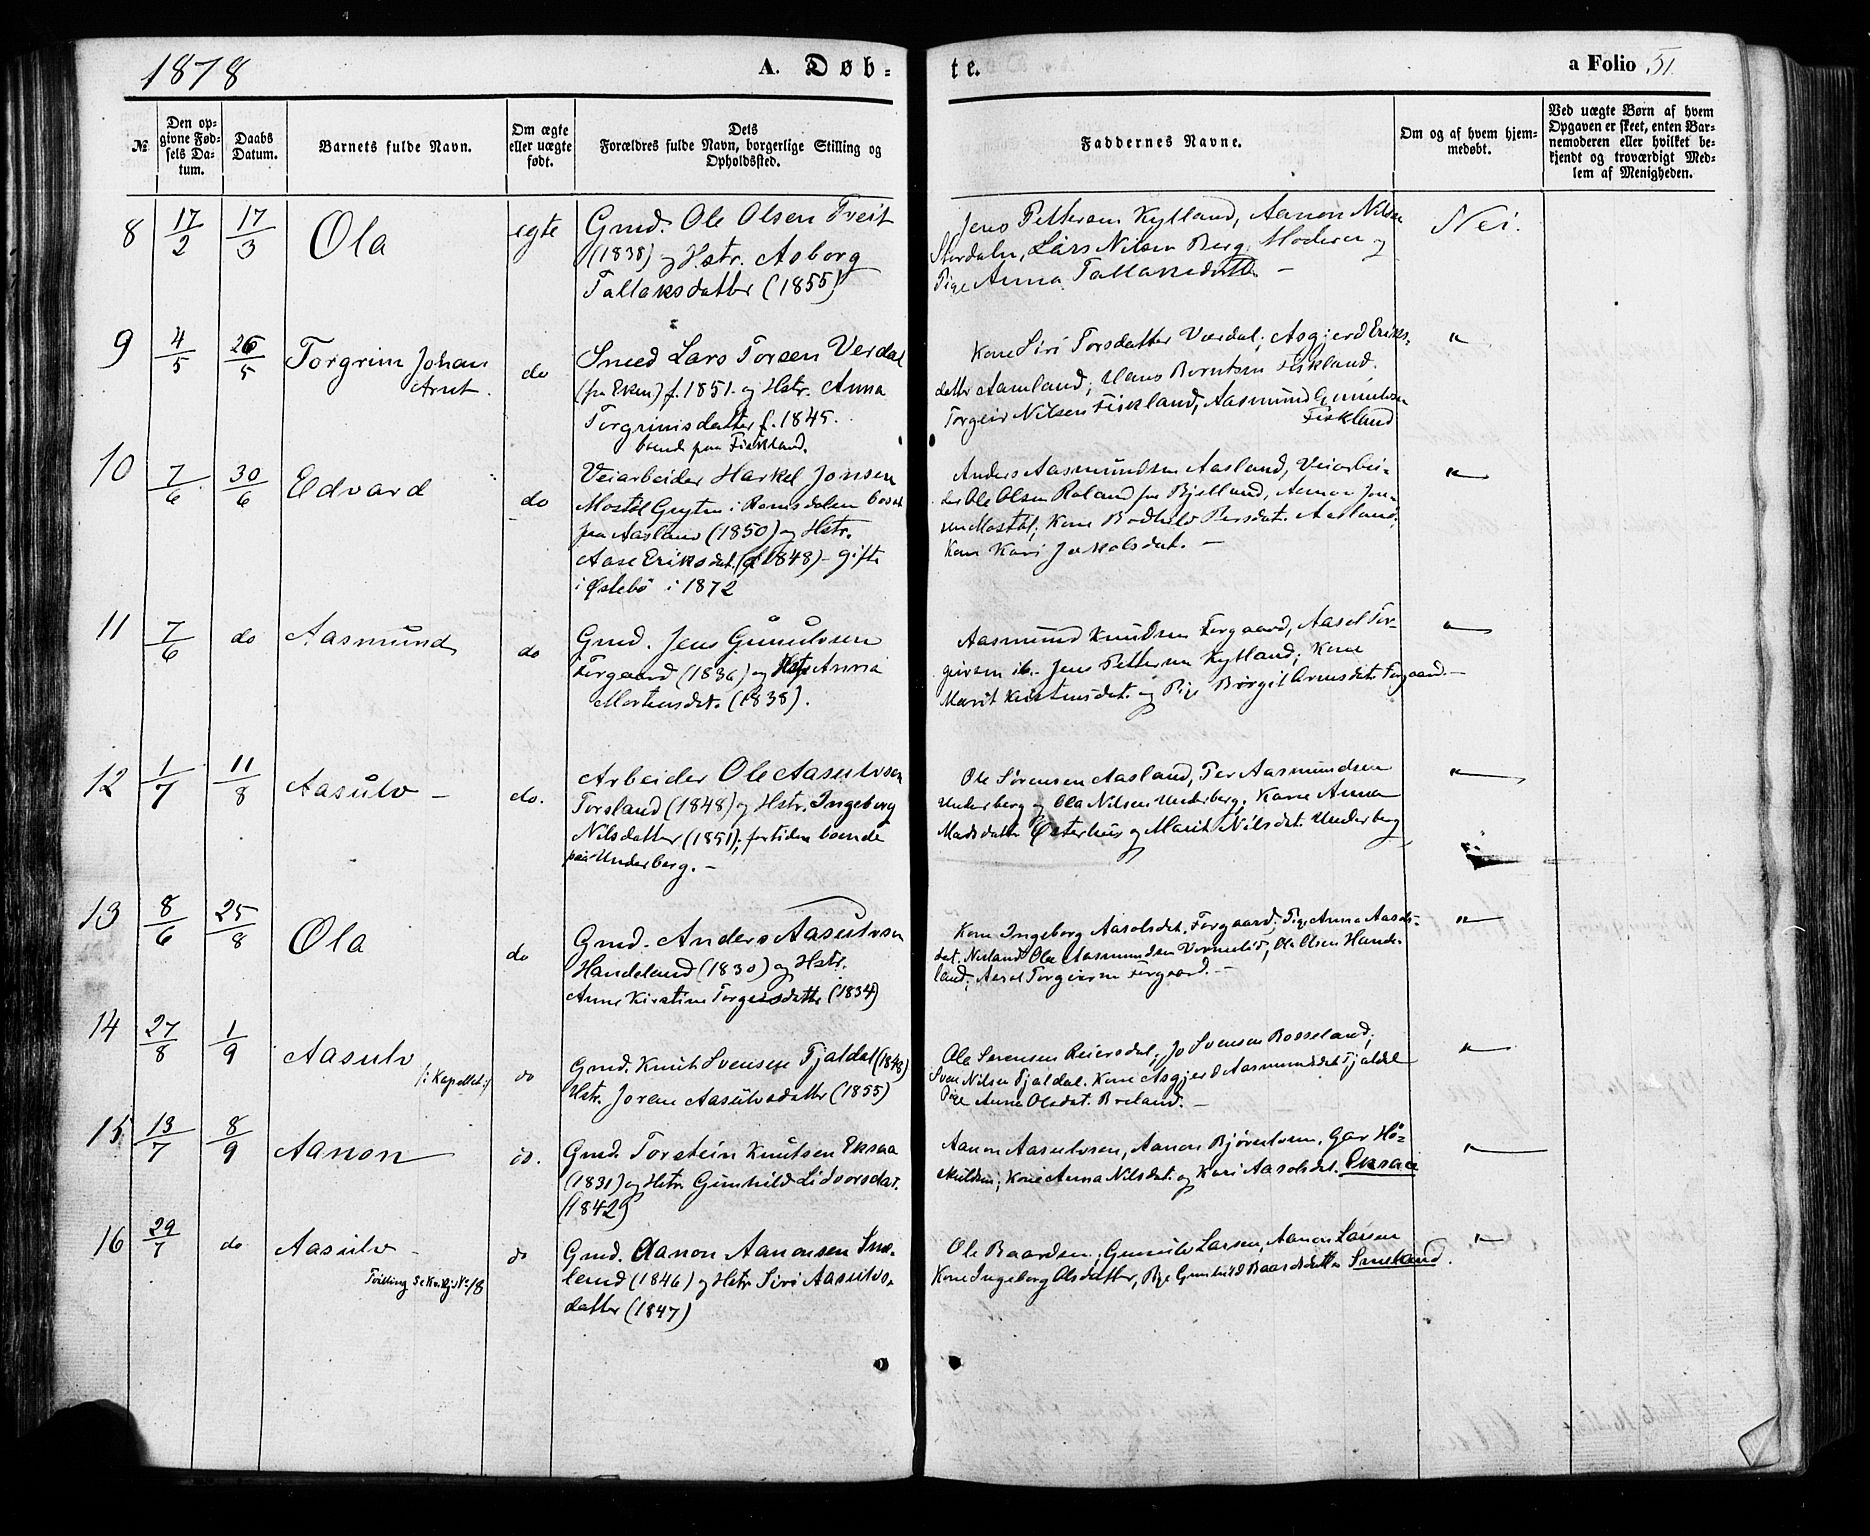 1878
A. Døb-
te.
a Folio 51.
№
Den op-
givne Fød-
sels Da-
tum.
Daabs
Datum.
Barnets fulde Navn.
Om ægte
eller uægte
født.
Dets
Forældres fulde Navn, borgerlige Stilling og
Opholdssted.
Faddernes Navne.
Om og af hvem hjem-
medøbt.
Ved uægte Børn af hvem
Opgaven er skeet, enten Bar-
nemoderen eller hvilket be-
kjendt og troværdigt Med-
lem af Menigheden.
8 17/2 17/3 Ola egte
Gmd. Ole Olsen Tveit
(1838) og Hstr. Asborg
Tallaksdatter (1855)
Jens Pettersen Kylland, Aanon Nilsen
Stordaln, Lars Nilsen Berg, Moderen og
Pige Anna Tallaksdatter —
Nei.
9 4/5 26/5 Torgrim Johan
Arnt. do
Smed Lars Torsen Verdal
(fra Eken) f. 1851. og Hstr. Anna
Torgrimsdatter f. 1845.
boende paa Fiskland.
Kone Siri Torsdatter Værdal; Asgjerd Eriks-
datter Aamland; Hans Berntsen Fiskland.
Torgeir Nilsen Fiskland, Aasmund Gunnulvsen
Fiskland
"
10 7/6 30/6 Edvard do
Veiarbeider Harkel Jonsen
Mostøl Grytn i Romsdalen bosat
paa Aasland (1850) og Hstr.
Aase Eriksdat. (f 1848) - gift
i Østebö i 1872
Anders Aasmundsen Aasland, Veiarbei-
der Ole Olsen Roland fra Bjelland, Aanon Jon-
sen Mostøl; Kone Bodhild Persdat. Aasland.
Kone Kari Jakolsdat. —
"
11 7/6 do Aasmund do
Gmd. Jens Gunulvsen
Fergaard (1836) og Hstr Anna
Mortensdat. (1838).
Aasmund Knudsen Fergaard, Aasel Tor-
geirsen ib. Jens Pettersen Kylland; Kone
Marit Kristensdat. og Pige Børgit Arnesdat. Fergaard. —
"
12 1/7 11/8 Aasulv — do.
Arbeider Ole Aasulvsen
Torsland (1848) og Hstr. Ingeborg
Nilsdatter (1851), for tiden boende
paa Underberg. —
Ole Sørensen Aasland, Per Aasmundsen
Underberg og Ola Nilsen Underberg. Kone Anna
Madsdatter Østerhus og Marit Nilsdat. Underberg
"
13 8/6 25/8 Ola do
Gmd. Anders Aasulvsen
Handeland (1830) og Hstr.
Anne Kirstine Torgeirsdatter (1834)
Kone Ingeborg Aasolsdat. Fergaard; Pige Anna Aasols-
dat. Nuland Ole Aasmundsen Vormeli; Ole Olsen Hande-
land; Aasel Torgeirsen Fergaard. —
"
14 27/8 1/9 Aasulv
/: i Kapellet :/ do
Gmd. Knut Svensen Fjaldal (1848)
Hstr. Joren Aasulvsdatter (1855)
Ole Sørensen Reiersdal; Jo Svensen Rosseland;
Sven Nilsen Fjaldal. Kone Asgjerd Aasmundsdat. Fjaldal
Pige Anne Olsdat. Breland. —
"
15 13/7 8/9 Aanon do.
Gmd. Torstein Knutsen Eksaa
(1831) og Hstr. Gunhild Lidvorsdat.
(1842)
Aanon Aasulvsen, Aanon Bjørnulvsen,
Kone Anna Nilsdat. og Kari Aasolsdat. Eksaa
"
16 29/7 do Aasulv —
Tvilling se Kvikj. № 18 do
Gmd. Aanon Aanonsen Sme-
land (1846) og Hstr Siri Aasulvs-
datter (1847)
Ole Baardsen, Gunulv Larsen, Aanon Larsen
Kone Ingeborg Olsdatter, Pige Gunhild Baardsdatter Smeland.
"